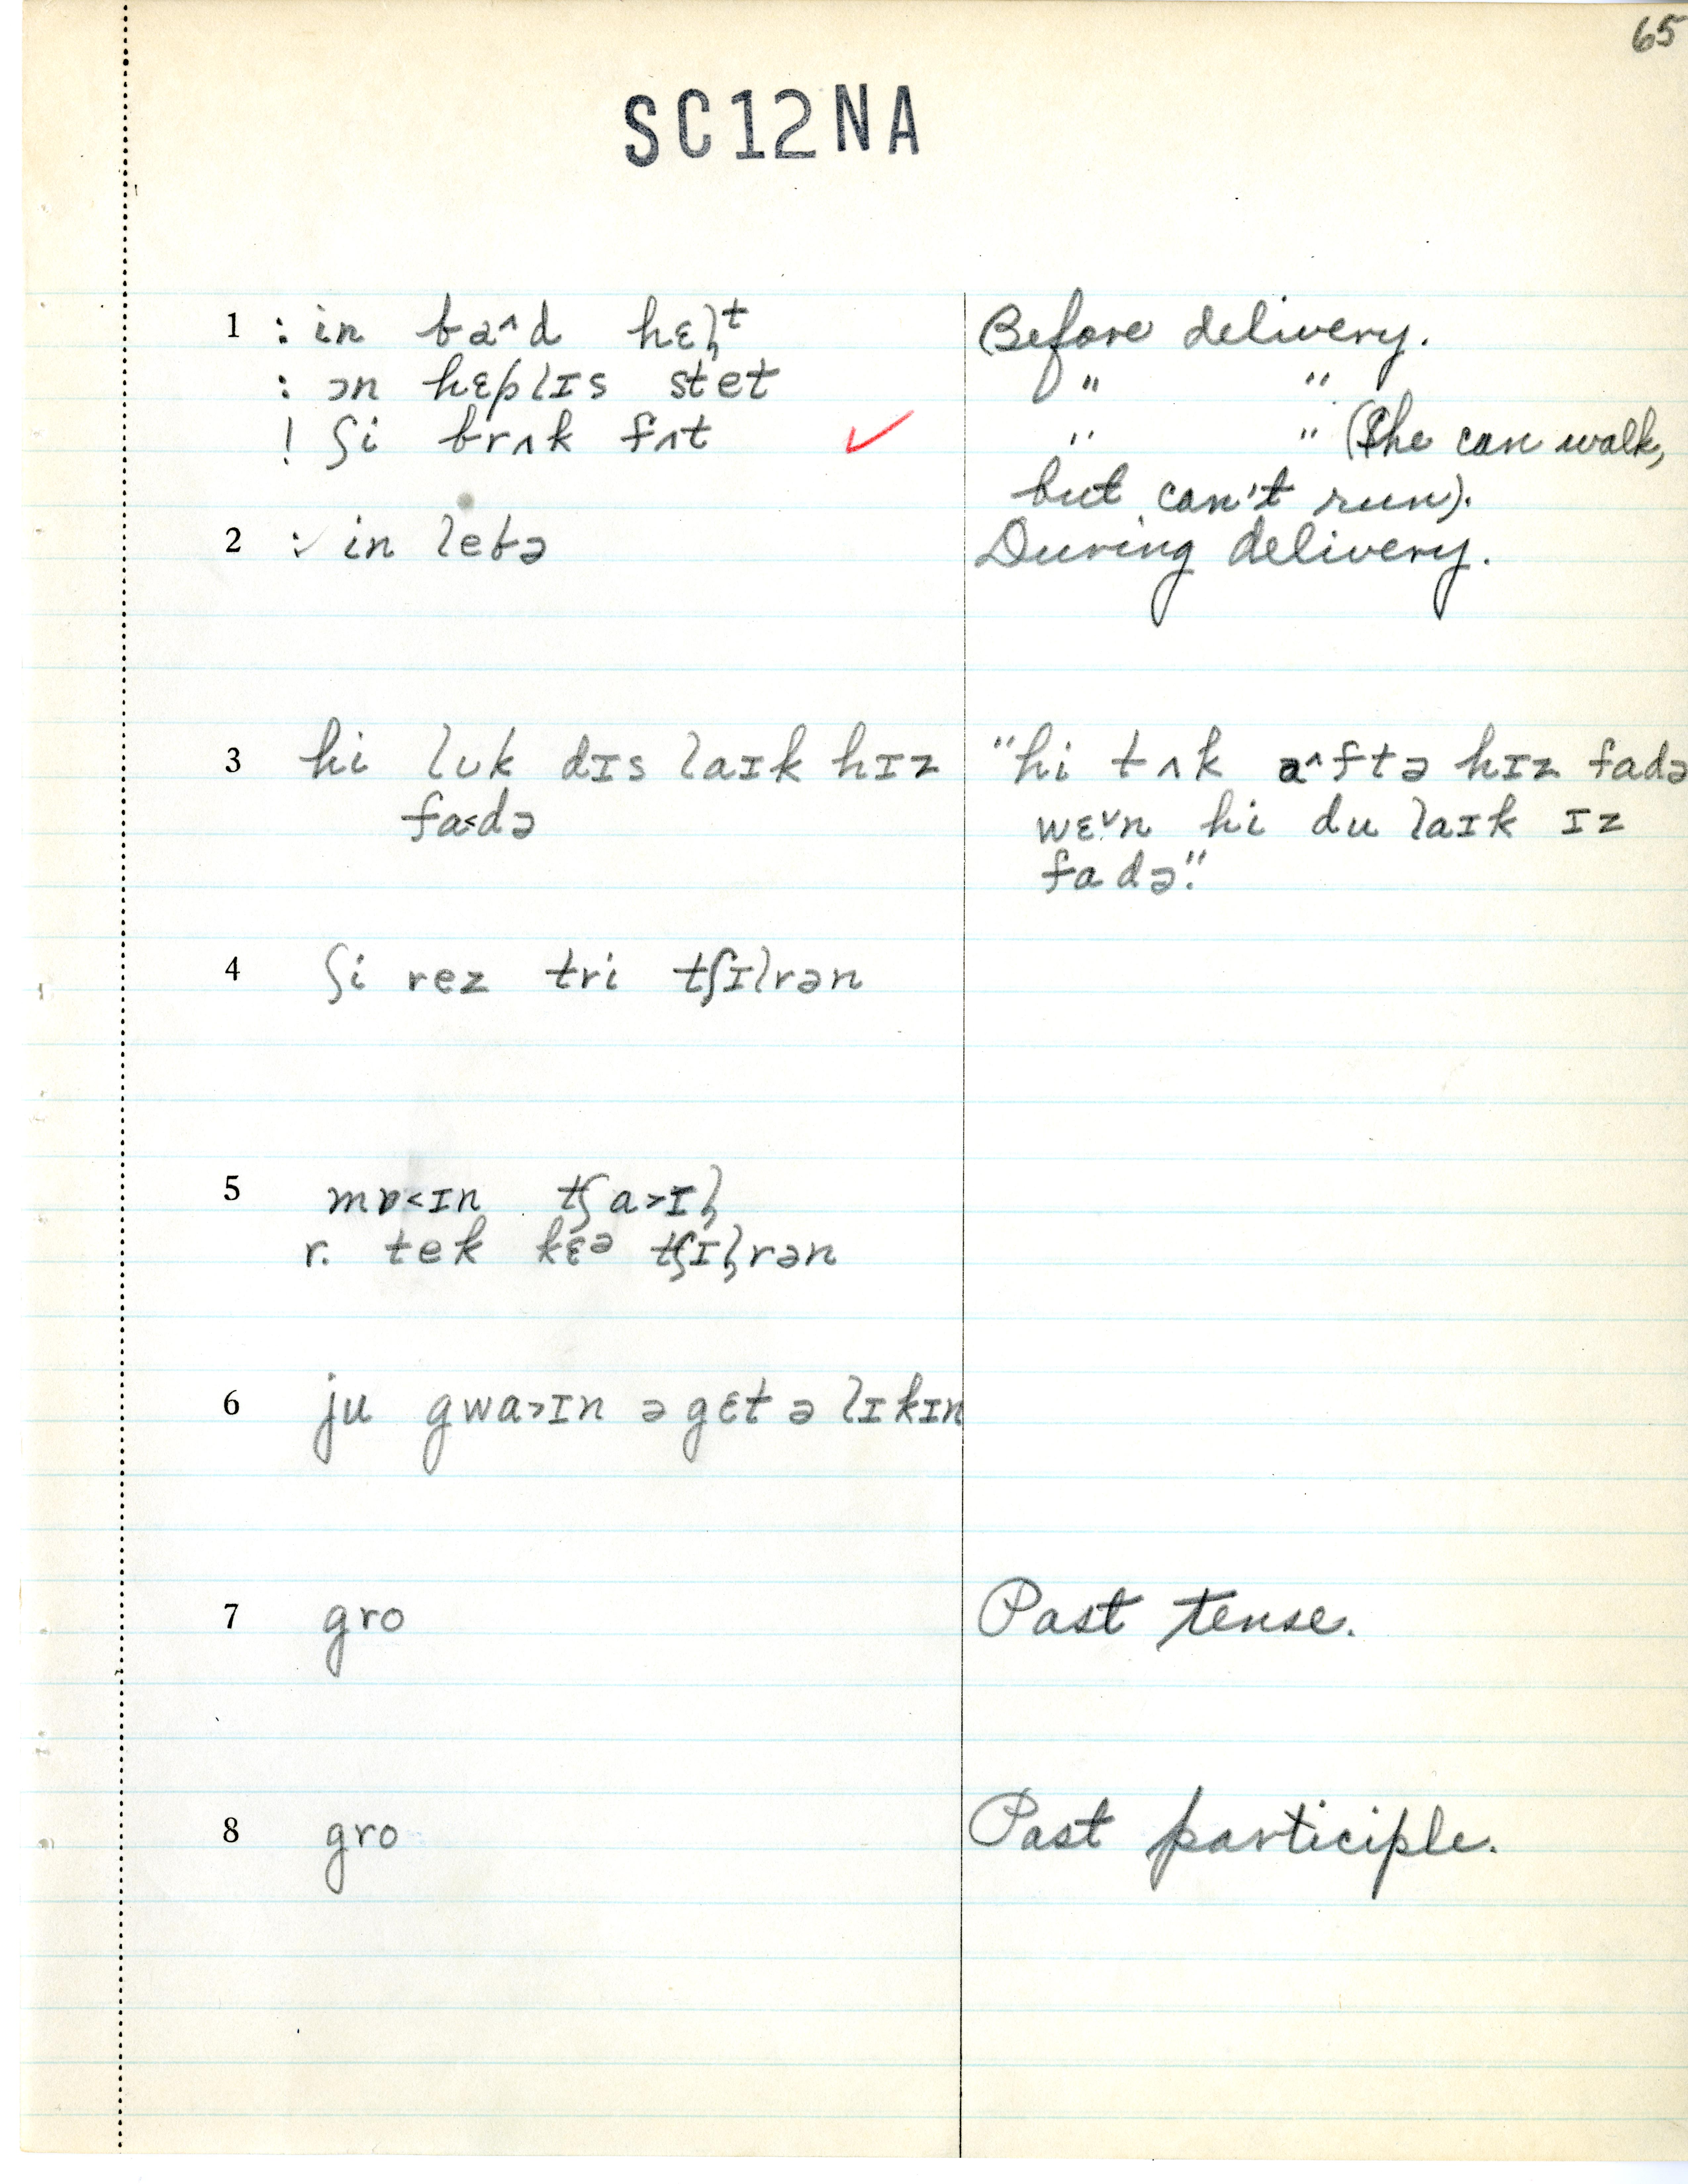 65
SC12NA
1 : in ba^d hɛl̥ᵗ Before delivery.
: ɔn hɛplɪs stet " "
! ʃi brʌk fʌt ✓ " " (She can walk,
but can't run).
2 : in lebə During delivery.
3 hi lʊk dɪs laɪk hɪz "hi tʌk a^ftə hɪz fadə
fa<də wɛˇn hi du laɪk ɪz
fadə."
4 ʃi rez tri tʃɪlrən
5 mɒ<ɪn tʃa>ɪl̥
r. tek kɛᵊ tʃɪl̥rən
6 ju gwa>ɪn ə gɛt ə lɪkɪn
7 gro Past tense.
8 gro Past participle.